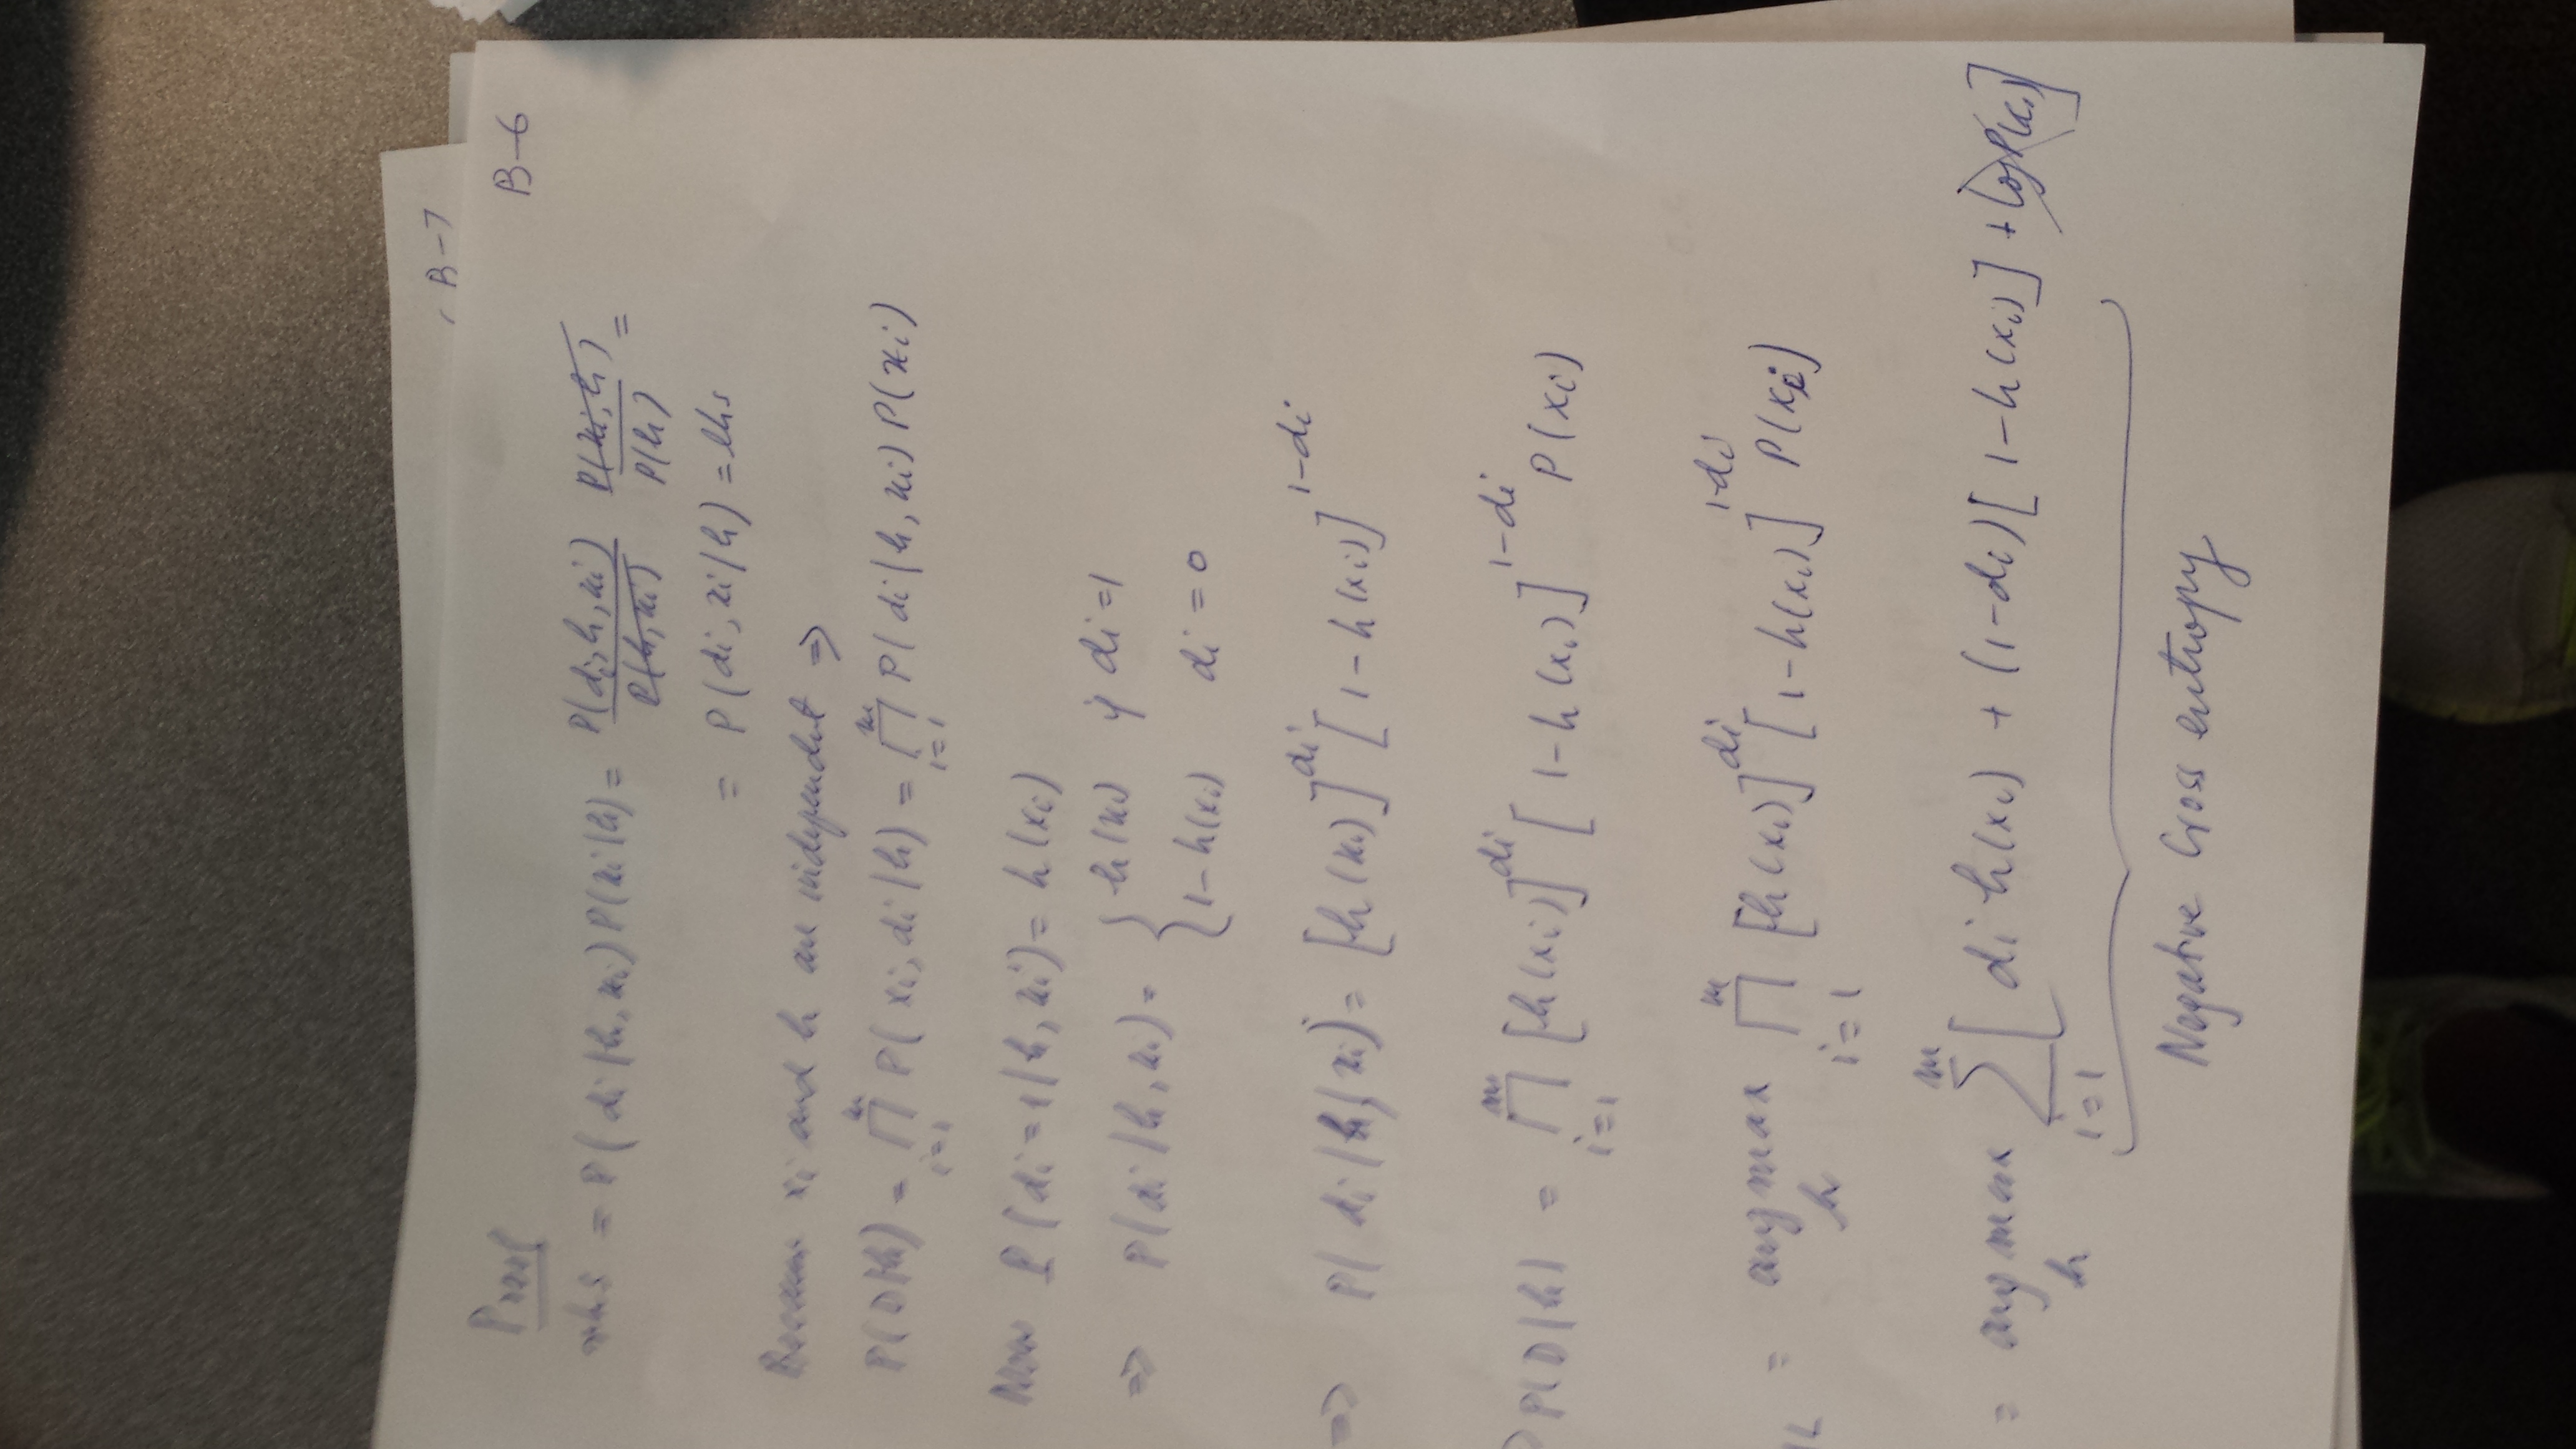 B-7
B-6
Proof
rhs = P(di|h,xi)P(xi|h) = P(di,h,xi)/P(h,xi) P(xi,h)/P(h) =
= P(di,xi|h) = lhs
xi and h are independent ⇒
P(D|h) = ∏_{i=1}^{m} P(xi,di|h) = ∏_{i=1}^{m} P(di|h,xi)P(xi)
Now P(di=1|h,xi) = h(xi)
⇒ P(di|h,xi) = { h(xi) if di=1
1-h(xi) di=0
⇒ P(di|h,xi) = [h(xi)]^{di} [1-h(xi)]^{1-di}
P(D|h) = ∏_{i=1}^{m} [h(xi)]^{di} [1-h(xi)]^{1-di} P(xi)
= argmax_h ∏_{i=1}^{m} [h(xi)]^{di} [1-h(xi)]^{1-di} P(xi)
= argmax_h ∑_{i=1}^{m} [di h(xi) + (1-di)[1-h(xi)] + log P(xi)]
Negative Cross entropy